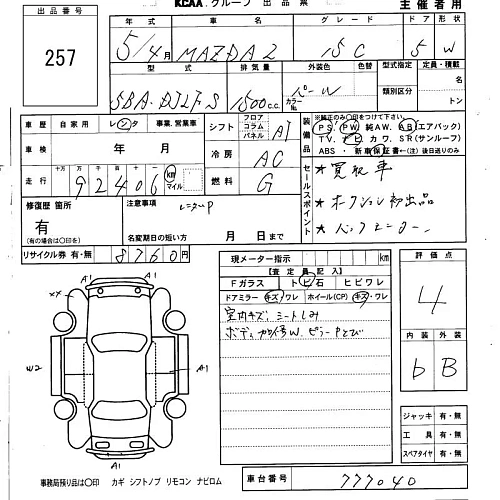 KCAA.グループ 出品票
主催者用
出品番号
257
年式 車名 グレード ドア 形状
5/4月 MAZDA2 15C 5 W
型式 排気量 外装色 色替 型式指定 定員・積載
DBA-DJLFS 1500cc カラーNo. パールW 類別区分 名 トン
車歴 自家用 レンタ 事業、営業車
車検 年 月
走行 十万 万 千 百 十 km マイル
92406
シフト フロア コラム パネル AT
冷房 AC
燃料 G
装備品
※純正のみ〇印をつけて下さい
PS、PW、純AW、AB(エアバック)
TV、ナビ、カワ、SR(サンルーフ)
ABS・新車保証書←(注)後日送りのみ
セールスポイント
★買取車
★オークション初出品
修復歴 箇所
有
(有の場合は〇印を)
注意事項
レーダーP
名変期日の短い方 月 日まで
リサイクル券 有・無 8760円
現メーター指示 km
【査定員記入】
Fガラス トビ石 ヒビワレ
ドアミラー キズ/ワレ ホイール(CP) キズ・ワレ
室内キズ、シートしみ
評価点
4
内装 外装
b B
A1 A1
XX
W2 A1
A1
ジャッキ 有・無
工具 有・無
スペアタイヤ 有・無
事務局預り品は〇印 カギ シフトノブ リモコン ナビロム
車台番号 777040